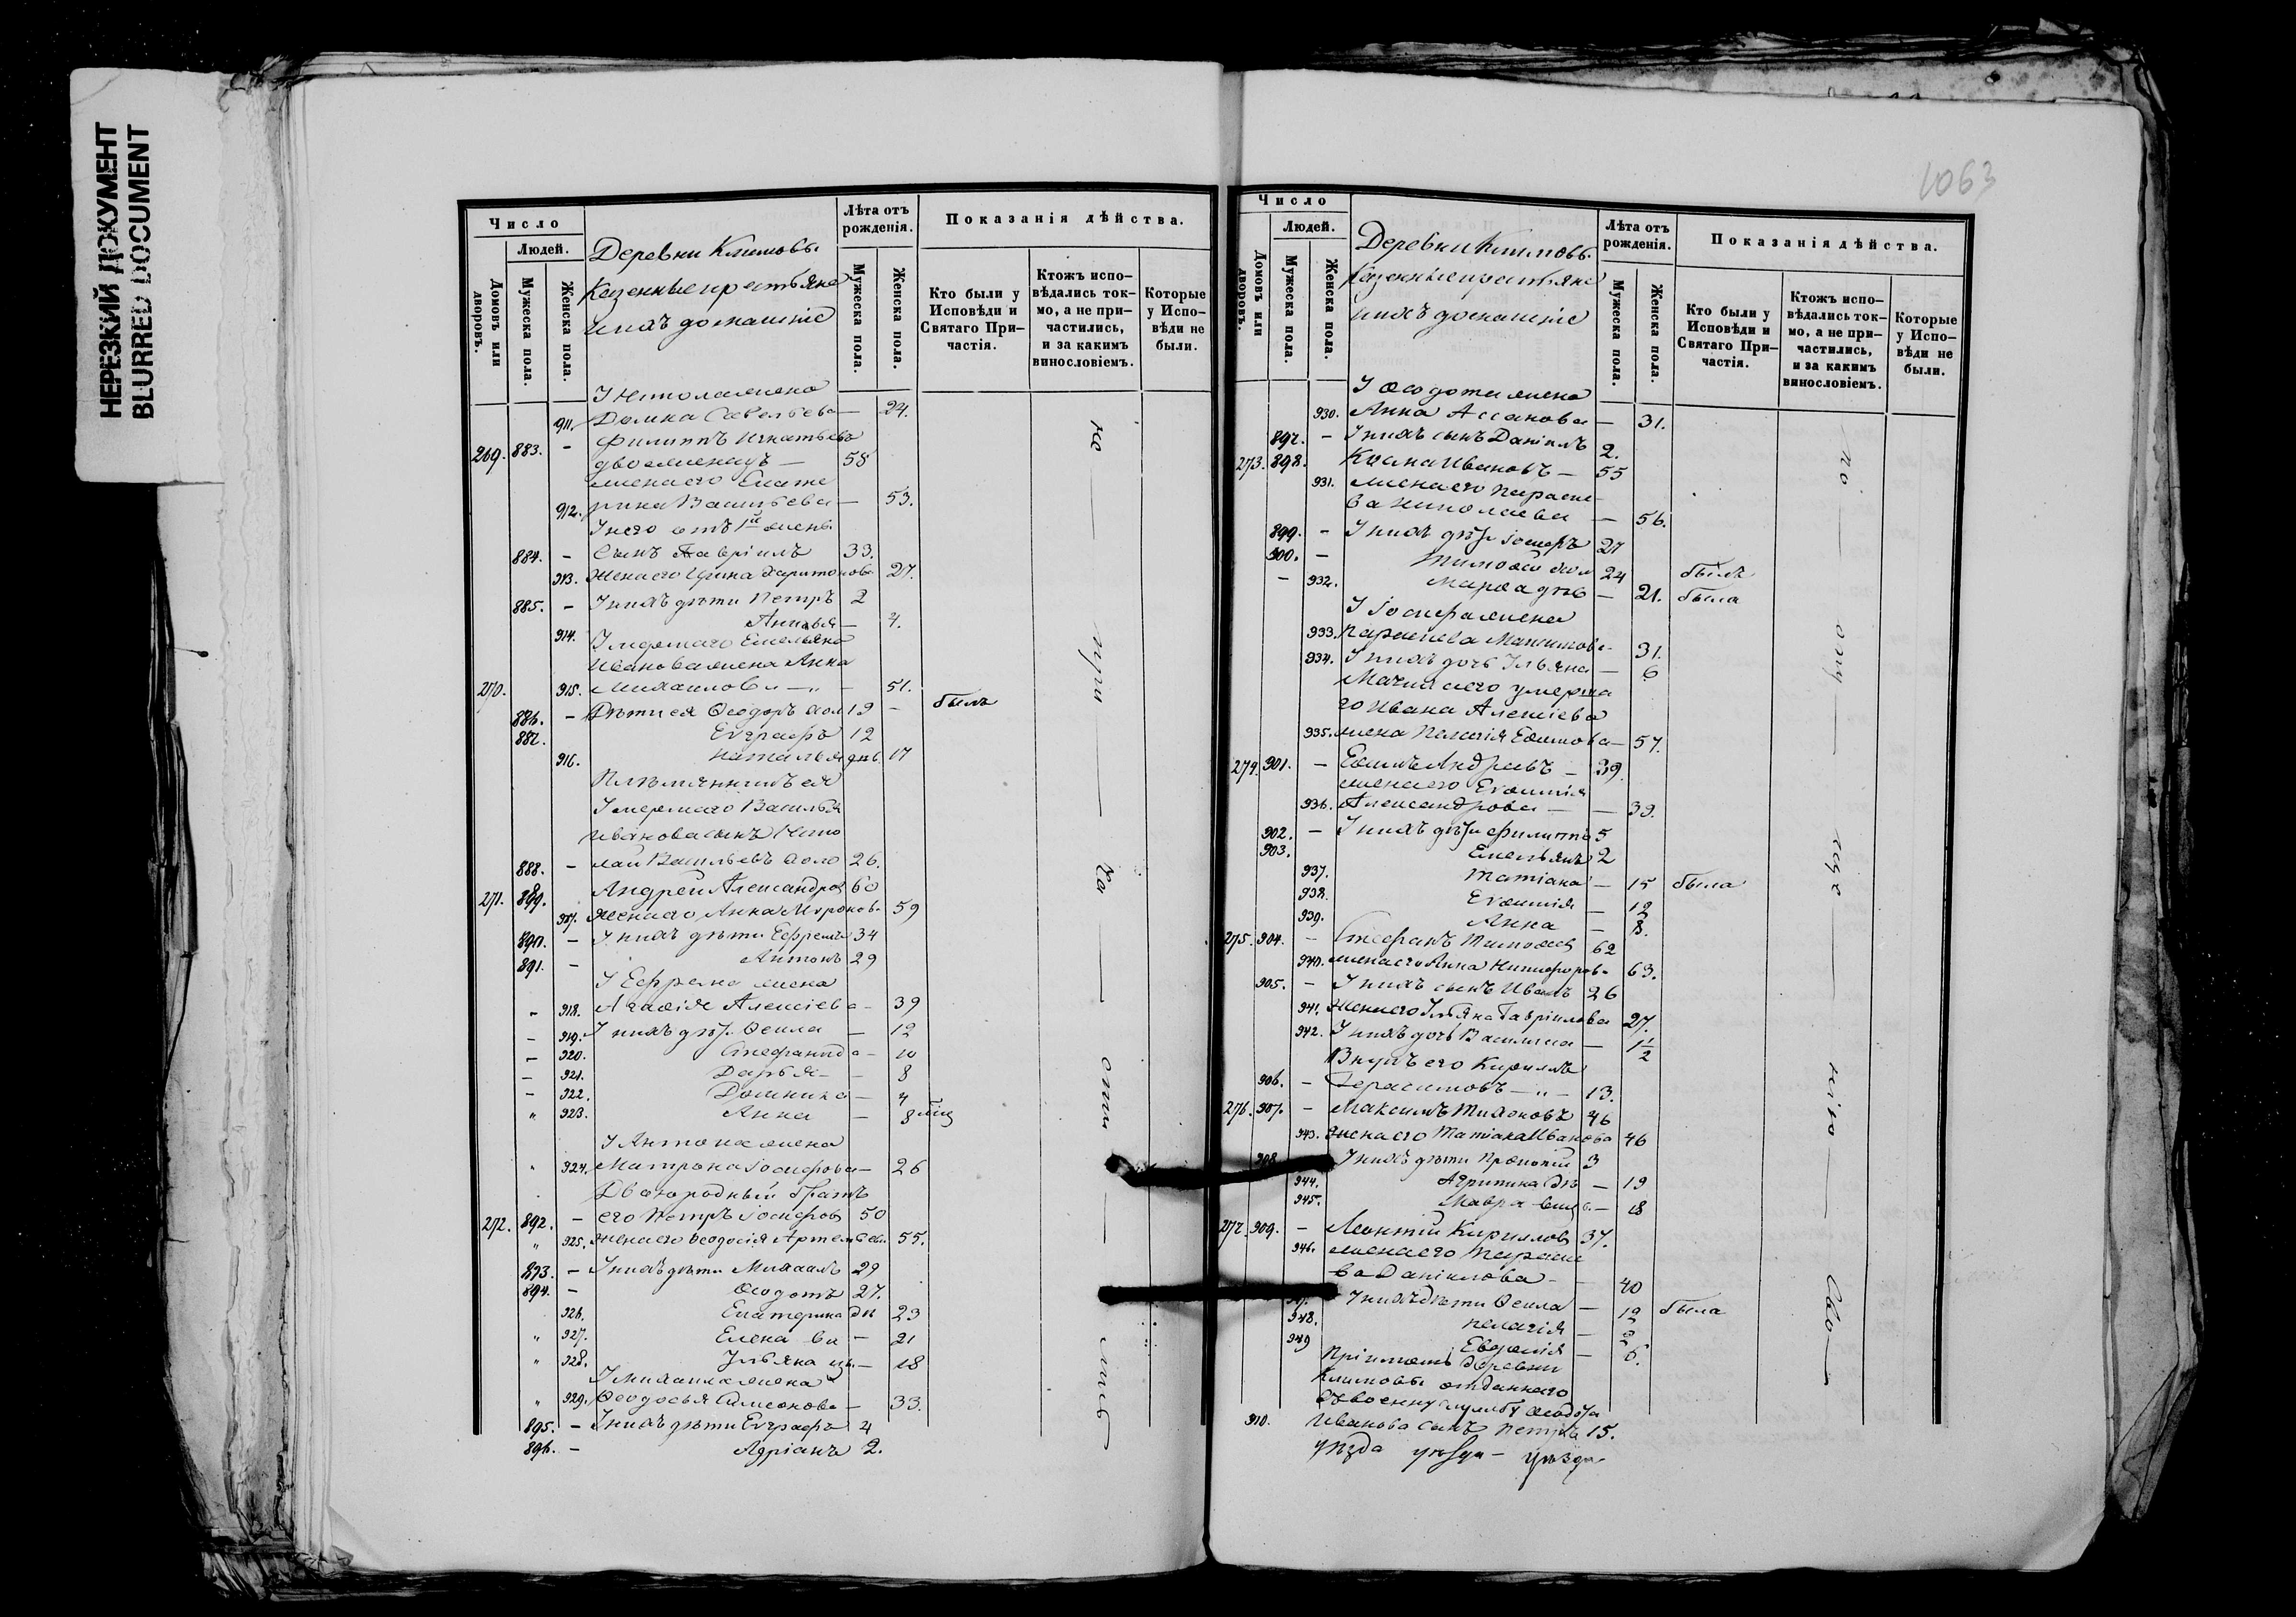 НЕРЕЗКИЙ ДОКУМЕНТ
BLURRED DOCUMENT
1063
Число
Людей.
Домовъ или дворовъ.
Мужеска пола.
Женска пола.
Деревни Климовы
Казенные крестьяне
и ихъ домашніе
Лѣта отъ рожденія.
Мужеска пола.
Женска пола.
Показанія дѣйства.
Кто были у Исповѣди и Святаго Причастія.
Ктожъ исповѣдались токмо, а не причастились, и за какимъ винословіемъ.
Которые у Исповѣди не были.
911. Домна Савельева — 24.
269. 883. — Филиппъ Игнатьевъ
двоеженецъ — 58
жена его Екате
912. рина Васильева — 53.
У него отъ 1й жены
884. — Сынъ Гавріилъ 33.
913. Жена его Ирина Харитонова 27.
885. — У нихъ дѣти Петръ 2
914. — 4.
Умершаго Емельяна
Иванова жена Анна
270. 915. Михаилова — „ — 51.
886. — Дѣти ея Ѳеодоръ хол 19 — былъ
887. Евграфъ 12
916. Наталья дѣв. 17
Племянникъ ея
Умершаго Василья
Иванова сынъ Нико
888. — лай Васильевъ холо 26.
271. 889. Андрей Александров 60
917. Жена его Анна Миронов. 59
890. — У нихъ дѣти Ефремъ 34
891. — Антонъ 29
У Ефрема жена
— 918. Агафія Алексіева — 39
— 919. У нихъ дѣт. Ѳекла — 12
— 920. Стефанида — 10
— 921. Дарья — 8
— 922. Домника — 4
„ 923. Анна — 8 мѣц
У Антона жена
„ 924. Матрона Іосифова — 26
Двоюродный братъ
272. 892. — его Петръ Іосифов 50
„ 925. жена его Ѳеодосія Артемьев. 55.
893. — У нихъ дѣти Михаилъ 29
894. — Ѳеодотъ 27.
926. Екатерина дѣ 23
„ 927. Елена — 21
„ 928. Ульяна — 18
У Михаила жена
„ 929. Ѳеодосья Симеонова — 33.
895. — У нихъ дѣти Евграфъ 4
896. — Адріанъ 2.
на — при — ча — сти — лись
Число
Людей.
Домовъ или дворовъ.
Мужеска пола.
Женска пола.
Деревни Климовы
Казенные крестьяне
и ихъ домашніе
Лѣта отъ рожденія.
Мужеска пола.
Женска пола.
Показанія дѣйства.
Кто были у Исповѣди и Святаго Причастія.
Ктожъ исповѣдались токмо, а не причастились, и за какимъ винословіемъ.
Которые у Исповѣди не были.
У Ѳеодота жена
930. Анна — 31.
897. — У нихъ сынъ Даніилъ 2.
273. 898. Козма Ивановъ — 55
931. жена его Параске
ва Николаева — 56.
899. — У нихъ дѣт. Іосифъ 27
900. — Тимоѳей хол 24 былъ
— 932. Марѳа дѣв — 21. была
У Іосифа жена
933. Параскева Максимова 31.
934. У нихъ дочь Ульяна — 6
Мачиха его умерша
го Ивана Алексіева
935. жена Пелагія Ефимова — 57.
274. 901. — Ефимъ Андреевъ — 39.
жена его Евфимія
936. Александрова — — 39.
902. — У нихъ дѣт. Филиппъ 5
903. Емельянъ 2
937. Татіана — 15 была
938. Евфимія — 12
939. Анна — 8.
275. 904. — Стефанъ Тимоѳеев 62
940. жена его Анна Никифоров. 63.
905. — У нихъ сынъ Иванъ 26
941. Жена его Ульяна Гавріилова 27.
942. У нихъ дочь Василиса — 1½
Внукъ его Кириллъ
906. — Герасимовъ — „ — 13.
276. 907. — Максимъ Тихоновъ 46
943. Жена его Татіана Иванова 46
908 У нихъ дѣти Прокопій 3
944. Агрипина дѣ — 19
945. Мавра — 18
277. 909. — Леонтій Кириллов 37.
946. жена его Параске
ва Даніилова — 40
У нихъ дѣти Ѳекла — 12 была
948. Пелагія —
949 Евдокія — 6.
Пріимышъ деревни
Климовы отданнаго
въ военну службу Ѳеодота
910. Иванова сынъ Петръ 15.
уѣзда уѣзда — уѣзда
по — сту — — нію — Сво —